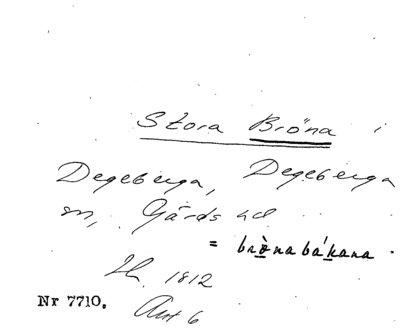 Stora Bröna i
Degeberga, Degeberga
sn, Gärds hd
= brònabákana.
Lh. 1812
Akt 6
Nr 7710.